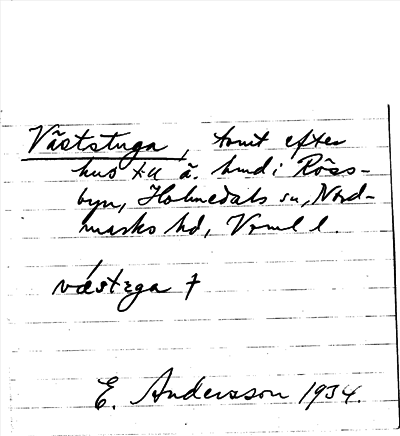 Väststuga, tomt efter
hus +u å. hmd i Röss-
byn, Holmedals sn, Nord-
marks hd, Vrml l.
væ´stƨga †
E. Andersson 1934.